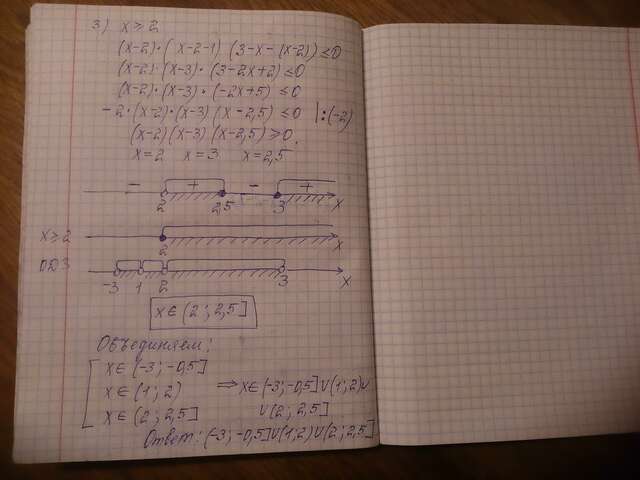 3) x ≥ 2
(x-2)·(x-2-1)(3-x-(x-2)) ≤ 0
(x-2)·(x-3)·(3-2x+2) ≤ 0
(x-2)·(x-3)·(-2x+5) ≤ 0
-2·(x-2)·(x-3)(x-2,5) ≤ 0 |:(-2)
(x-2)(x-3)(x-2,5) ≥ 0
x=2 x=3 x=2,5
- + - +
2 2,5 3 x
x ≥ 2 2 x
ОДЗ -3 1 2 3 x
x ∈ (2; 2,5]
Объединяем:
[ x ∈ (-3; -0,5]
x ∈ (1; 2) ⇒ x ∈ (-3; -0,5] ∪ (1; 2) ∪
x ∈ (2; 2,5] ∪ (2; 2,5]
Ответ: (-3; -0,5] ∪ (1; 2) ∪ (2; 2,5]